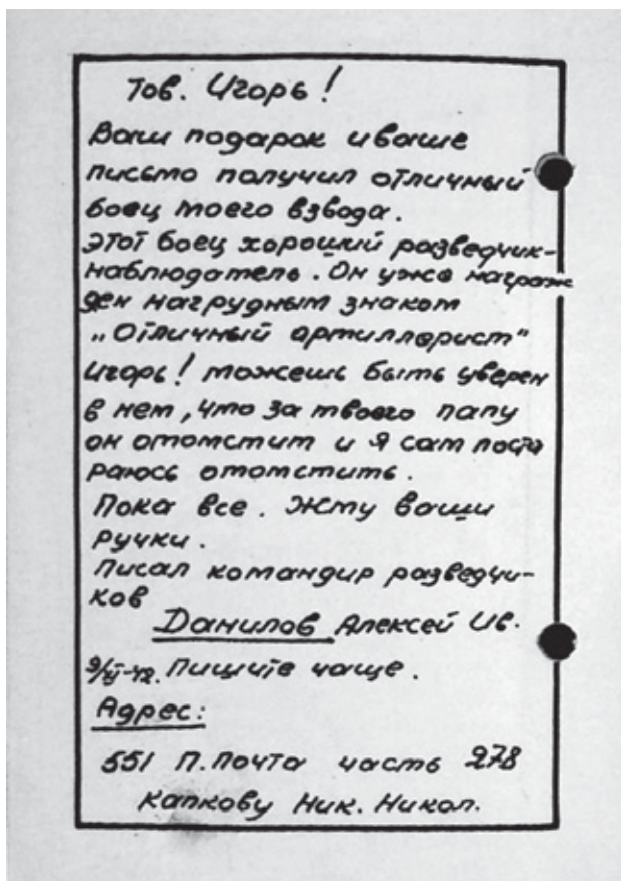 Тов. Игорь!
Ваш подарок и ваше
письмо получил отличный
боец моего взвода.
Этот боец хороший разведчик-
наблюдатель. Он уже награж
ден нагрудным знаком
„Отличный артиллерист"
Игорь! можешь быть уверен
в нем, что за твоего папу
он отомстит и я сам поста
раюсь отомстить.
Пока все. Жму ваши
ручки.
Писал командир разведчи-
ков
Данилов Алексей Ив.
Пишите чаще.
Адрес:
551 П.Почта часть 278
Капкову Ник. Никол.